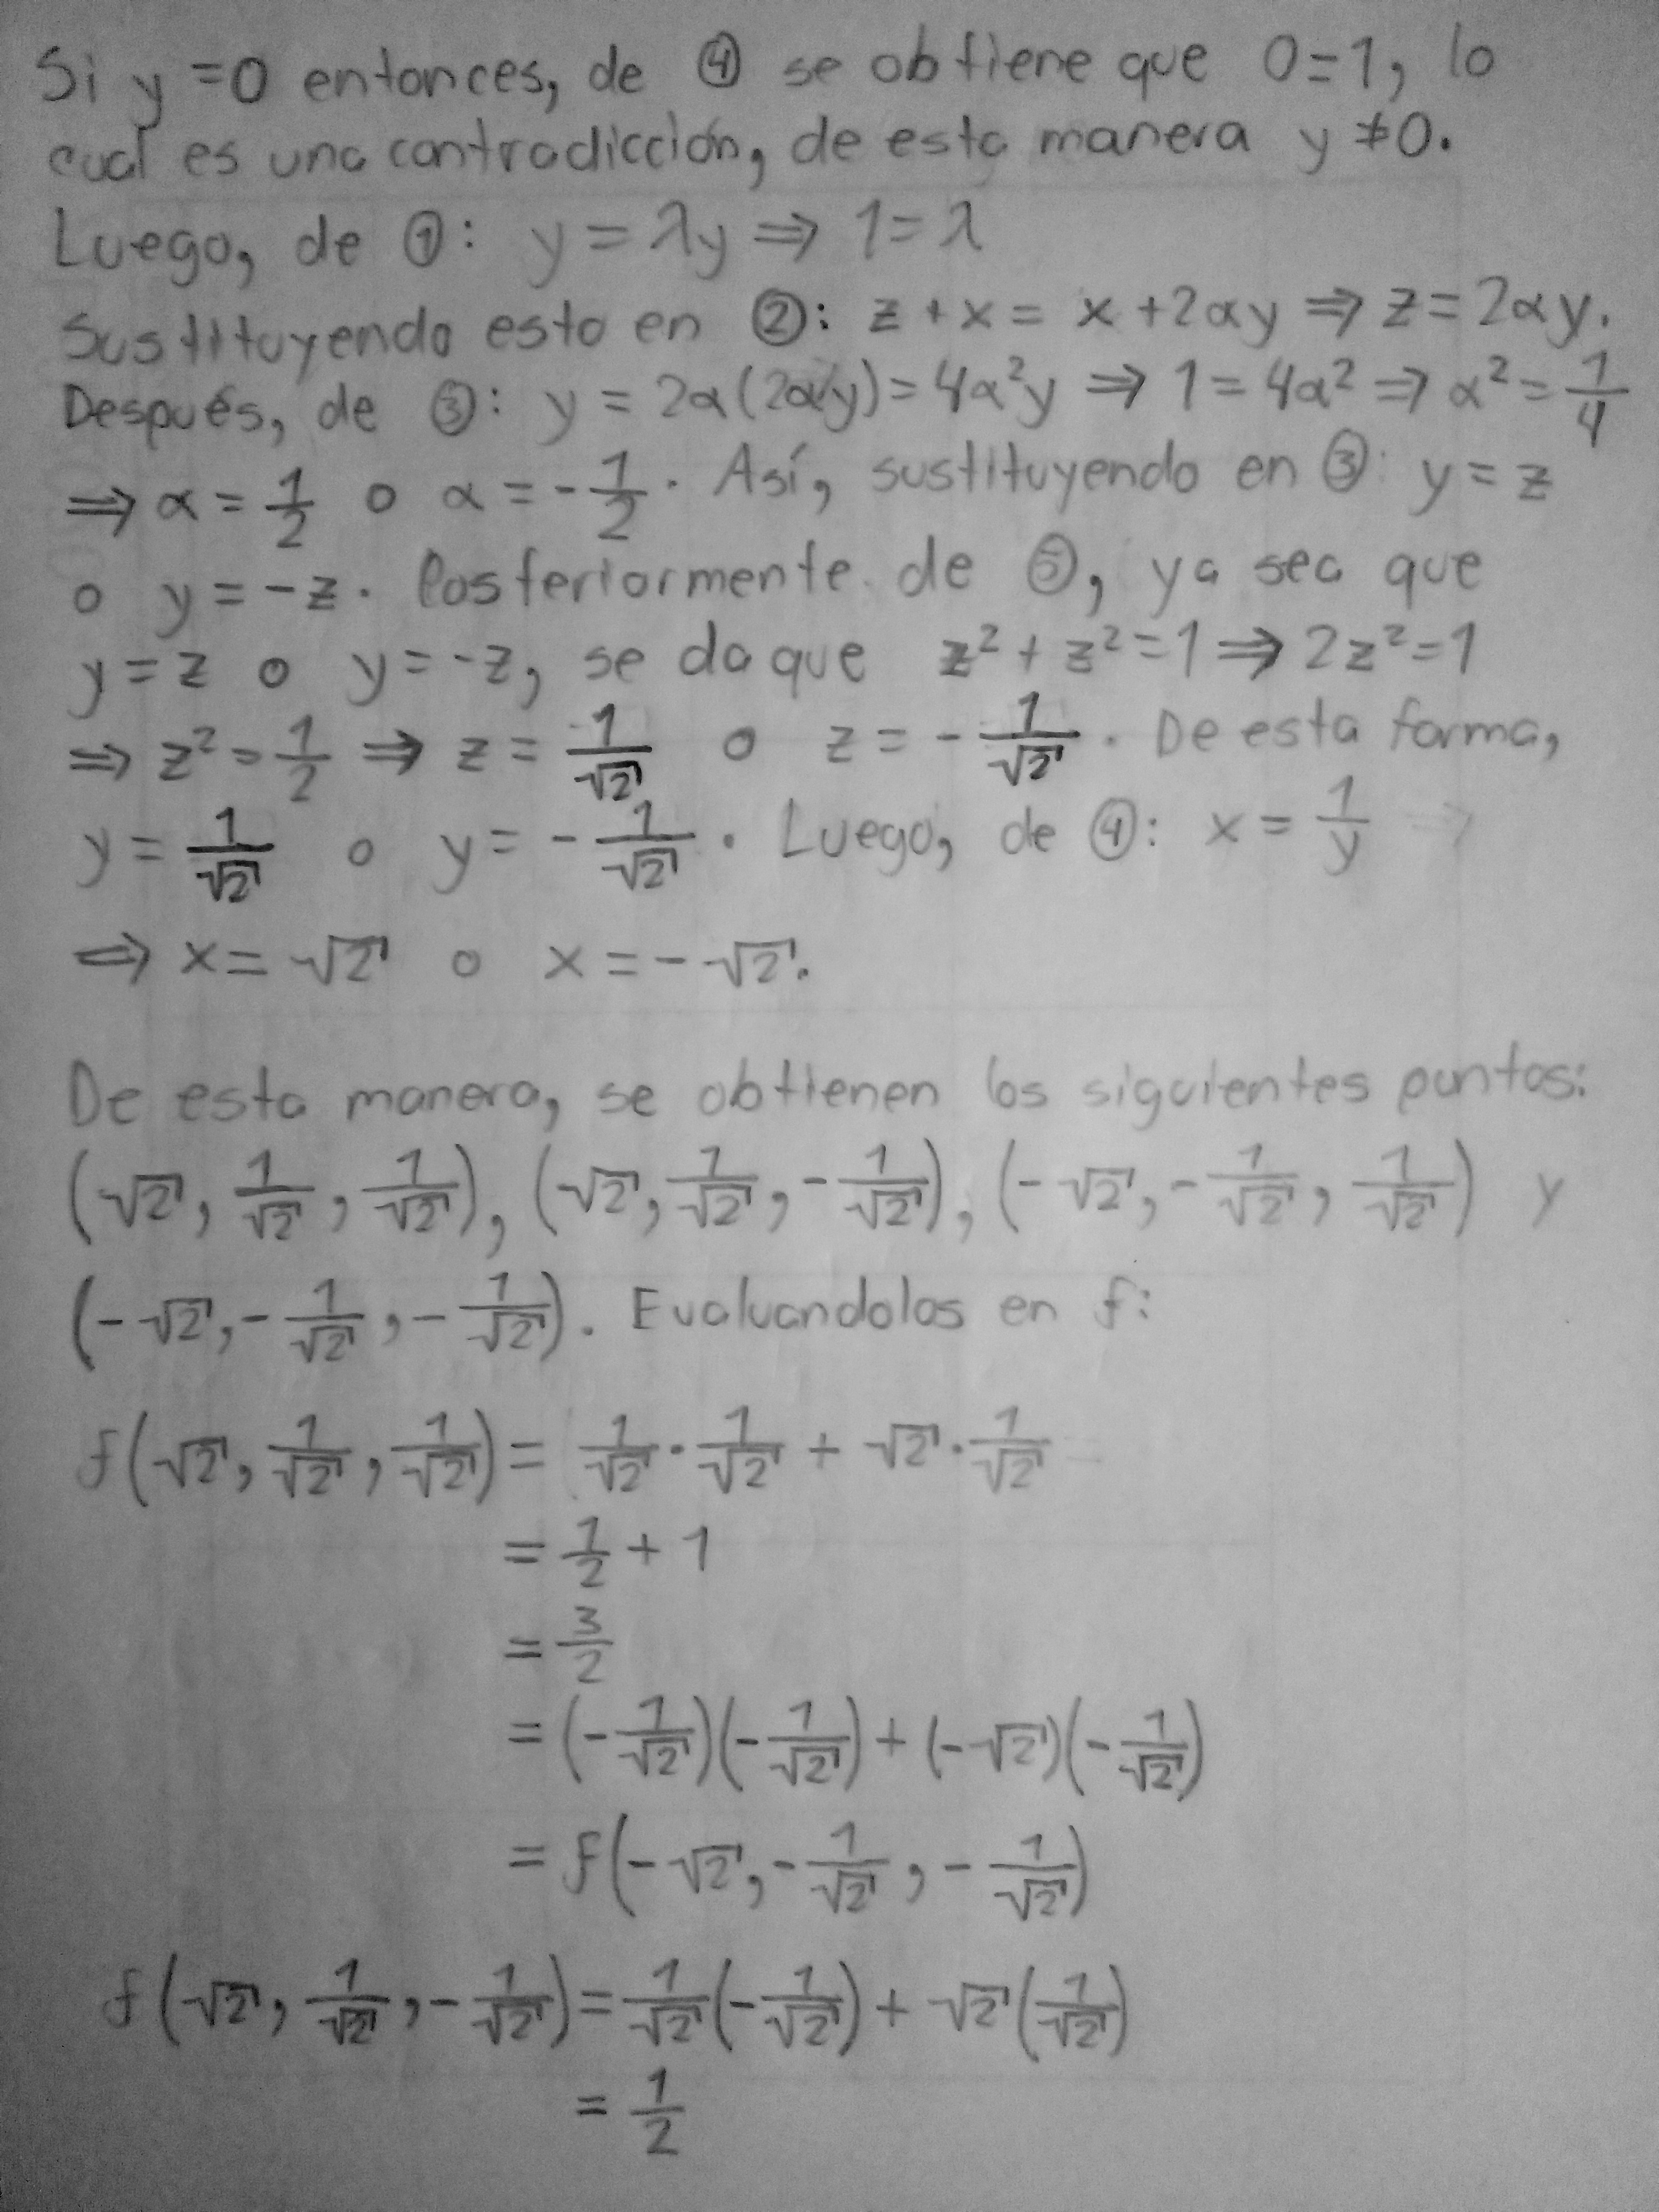 Si y = 0 entonces, de ④ se obtiene que 0=1, lo
cual es una contradicción, de esta manera y ≠ 0.
Luego, de ①: y = λy ⇒ 1 = λ
Sustituyendo esto en ②: z + x = x + 2αy ⇒ z = 2αy.
Después, de ③: y = 2α(2αy) = 4α²y ⇒ 1 = 4α² ⇒ α² = 1/4
⇒ α = 1/2 o α = -1/2. Así, sustituyendo en ③: y = z
o y = -z. Posteriormente de ⑤, ya sea que
y = z o y = -z, se da que z² + z² = 1 ⇒ 2z² = 1
⇒ z² = 1/2 ⇒ z = 1/√2 o z = -1/√2. De esta forma,
y = 1/√2 o y = -1/√2. Luego, de ④: x = 1/y ⇒
⇒ x = √2 o x = -√2.
De esta manera, se obtienen los siguientes puntos:
(√2, 1/√2, 1/√2), (√2, 1/√2, -1/√2), (-√2, -1/√2, 1/√2) y
(-√2, -1/√2, -1/√2). Evaluandolos en f:
f(√2, 1/√2, 1/√2) = 1/√2 · 1/√2 + √2 · 1/√2 =
= 1/2 + 1
= 3/2
= (-1/√2)(-1/√2) + (-√2)(-1/√2)
= f(-√2, -1/√2, -1/√2)
f(√2, 1/√2, -1/√2) = 1/√2(-1/√2) + √2(1/√2)
= 1/2